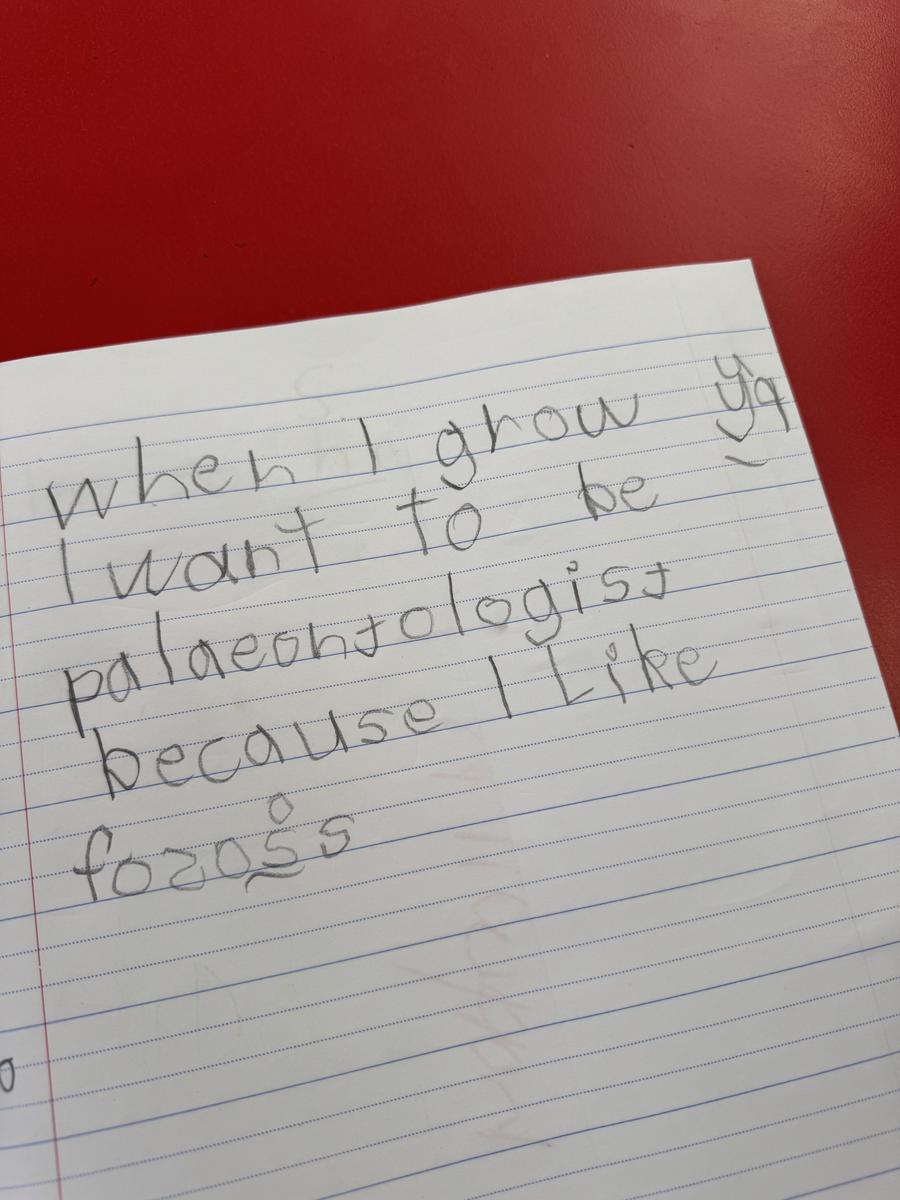 When I grow yq
I want to be
palaeontologist
because I Like
fozoss